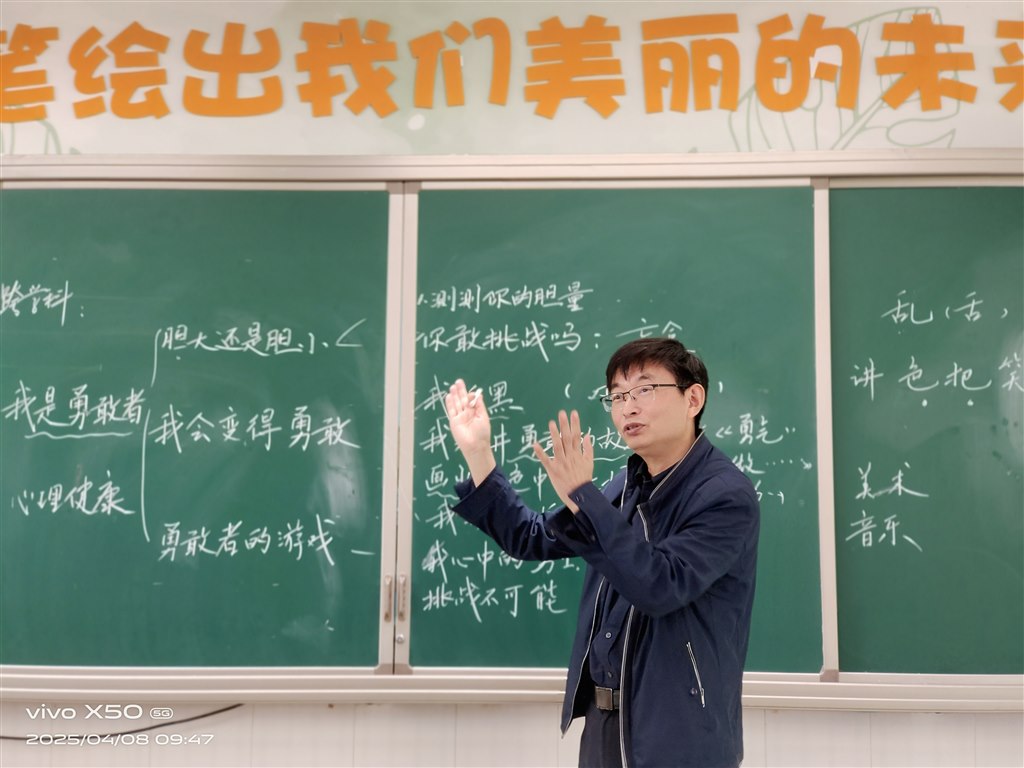 笔绘出我们美丽的未来
跨学科:
胆大还是胆小
我是勇敢者
我会变得勇敢
心理健康
勇敢者的游戏
测测你的胆量
你敢挑战吗:
我 黑
我 讲勇 的故 《勇气
画 色中
做……
我
我心中的勇士
挑战不可能
乱(舌,
讲 色 把 笑
美术
音乐
vivo X50 5G
2025/04/08 09:47